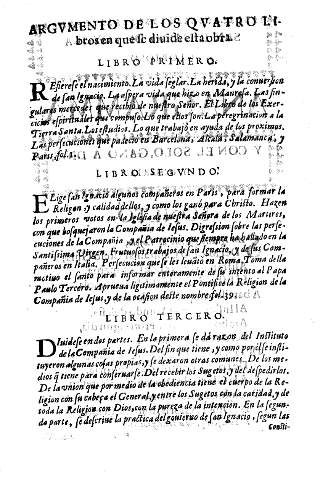 ARGVMENTO DE LOS QVATRO LI-
bros en que se diuide esta obra.
LIBRO PRIMERO.
REfierese el nacimiento. La vida seglar. La herida, y la conuersion
de san Ignacio. La aspera vida que hizo en Manresa. Las sin-
gulares mercedes que recibio de nuestro Señor. El Libro de los Exer-
cicios espirituales que compuso. Lo que estos son. La peregrinacion a la
Tierra Santa. Los estudios. Lo que trabajò en ayuda de los proximos.
Las persecuciones que padecio en Barcelona, Alcala, Salamanca, y
Paris, fol. 1.
LIBRO SEGVNDO.
ELige san Ignacio algunos compañeros en Paris, para formar la
Religion, y calidad dellos, y como los ganò para Christo. Hazen
los primeros votos en la Iglesia de nuestra Señora de los Martires,
con que bosquejaron la Compañia de Iesus. Digression sobre las perse-
cuciones de la Compañia, y el Patrocinio que siempre ha hallado en la
Santissima Virgen. Frutuosos trabajos de san Ignacio, y de sus Com-
pañeros en Italia. Persecucion que se les leuãto en Roma. Toma della
motiuo el santo para informar enteramente de su intento al Papa
Paulo Tercero. Aprueua legitimamente el Pontifice la Religion de la
Compañia de Iesus, y de la ocasion deste nombre, fol. 39.
LIBRO TERCERO.
DIuidese en dos partes. En la primera se dà razon del Instituto
de la Compañia de Iesus. Del fin que tiene, y como por èl se insti-
tuyeron algunas cosas propias, y se dexaron otras comunes. De los me-
dios q̃ tiene para conseruarse. Del recibir los Sugetos, y del despedirlos.
De la vnion que por medio de la obediencia tiene el cuerpo de la Re-
ligion con su cabeça el General, y entre los Sugetos con la caridad, y de
toda la Religion con Dios, con la pureza de la intencion. En la segun-
da parte, se descriue la practica del gouierno de san Ignacio, segun las
Consti-